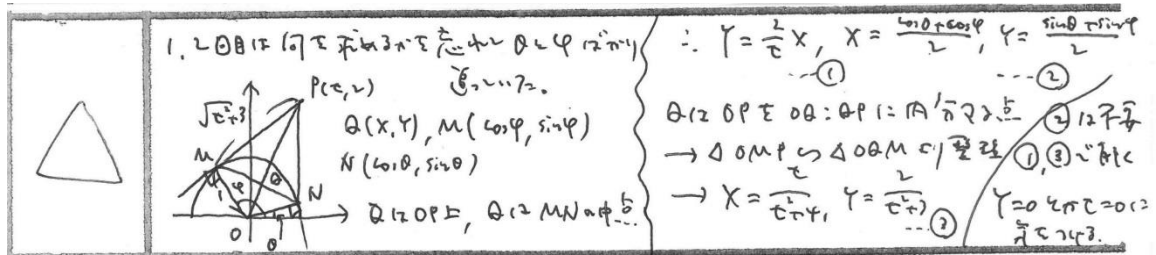 1, 2回目は何を求めるかを忘れ θとφばかり
追っていた。
P(t, 2)
√t²+3
Q(X, Y), M(cosφ, sinφ)
N(cosθ, sinθ)
M
φ
Q
1
N
O
θ
QはOP上, QはMNの中点…
∴ Y = 2/t X, X = cosθ+cosφ/2, Y = sinθ+sinφ/2
---①
---②
QはOPをOQ:QPに内分する点
→ △OMP∽△OQMより整理
→ X = t/t²+4, Y = 2/t²+
…③
②は不要
①,③で解く
Y=0 t=0に
気をつける.